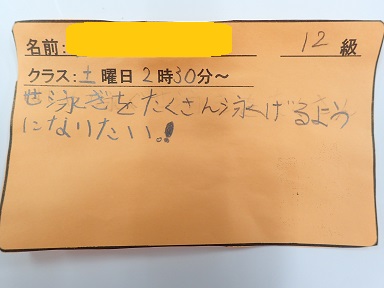 名前: 12級
クラス:土曜日2時30分~
せ泳ぎをたくさん泳げるよう
になりたい!